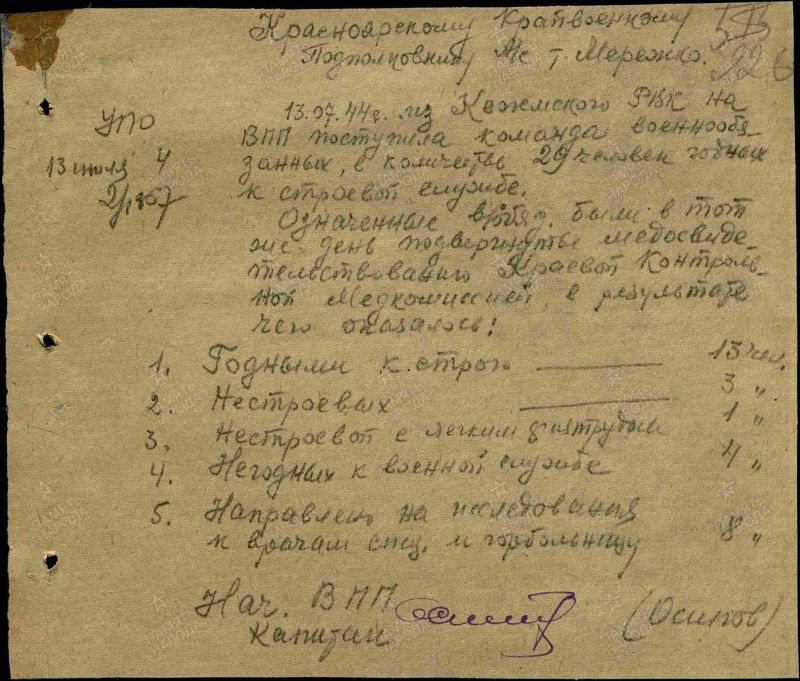 Красноярскому Крайвоенкому
Подполковнику М/с т. Мережко.
226
УПО
13 июля 4
2/1857
13.07.44г. из Кежемского РВК на
ВПП поступила команда военнообя_
занных, в количестве 29 человек годных
к строевой службе.
Означенные в/обяз. были в тот
же день подвергнуты медосвиде_
тельствованию Краевой Контроль_
ной Медкомиссией, в результате
чего оказалось:
1. Годными к строю 13 чел.
2. Нестроевых 3 "
3. Нестроевой с легким физтрудом 1 "
4. Негодных к военной службе 4 "
5. Направлено на исследования
к врачам спец. и горбольницу 8 "
Нач. ВПП
Капитан (Осипов)